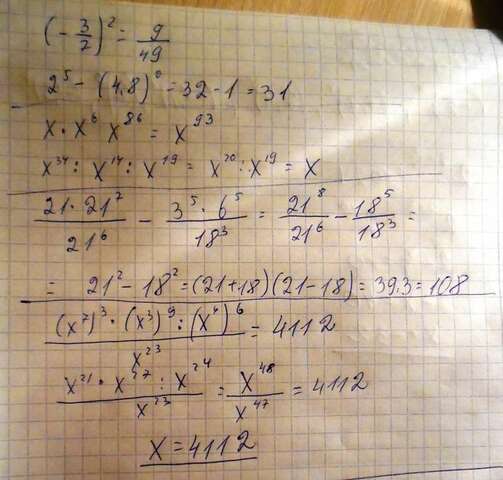 (-3/7)² = 9/49
2⁵ - (4,8)⁰ = 32 - 1 = 31
x · x⁶ x⁸⁶ = x⁹³
x³⁴ : x¹⁴ : x¹⁹ = x²⁰ : x¹⁹ = x
21 · 21²/21⁶ - 3⁵ · 6⁵/18³ = 21⁸/21⁶ - 18⁵/18³ =
= 21² - 18² = (21+18)(21-18) = 39·3 = 108
(x⁷)³ · (x³)⁹ : (x⁴)⁶/x²³ = 4112
x²¹ · x²⁷ : x²⁴/x²³ = x⁴⁸/x⁴⁷ = 4112
x = 4112